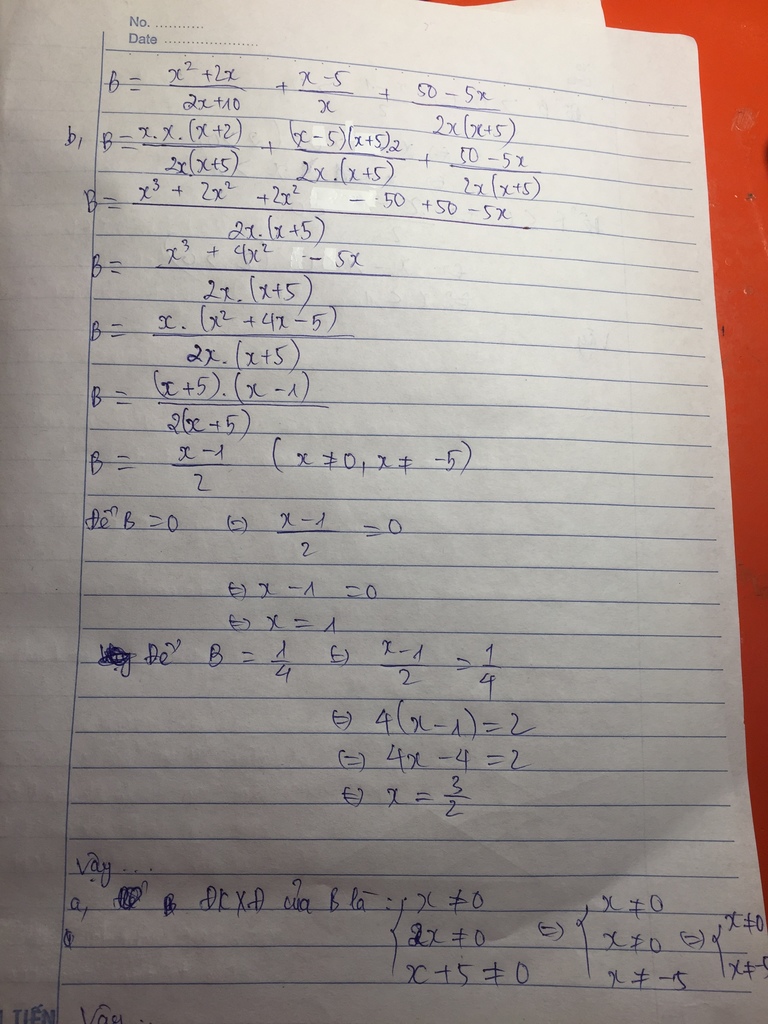 No. ............
Date ......................
B = (x² + 2x)/(2x+10) + (x - 5)/x + (50 - 5x)/(2x(x+5))
b, B = (x.x.(x+2))/(2x(x+5)) + ((x-5)(x+5).2)/(2x.(x+5)) + (50 - 5x)/(2x(x+5))
B = (x³ + 2x² + 2x² - 50 + 50 - 5x)/(2x.(x+5))
B = (x³ + 4x² - 5x)/(2x.(x+5))
B = (x.(x² + 4x - 5))/(2x.(x+5))
B = ((x+5).(x-1))/(2(x+5))
B = (x-1)/2 (x ≠ 0, x ≠ -5)
Để B = 0 ⇔ (x-1)/2 = 0
⇔ x - 1 = 0
⇔ x = 1
Để B = 1/4 ⇔ (x-1)/2 = 1/4
⇔ 4(x-1) = 2
⇔ 4x - 4 = 2
⇔ x = 3/2
Vậy ...
a, ĐKXĐ của B là: { x ≠ 0 ⇔ { x ≠ 0 ⇔ { x ≠ 0
2x ≠ 0 x ≠ 0 x ≠ -5
x + 5 ≠ 0 x ≠ -5
TIẾN Vậy ..